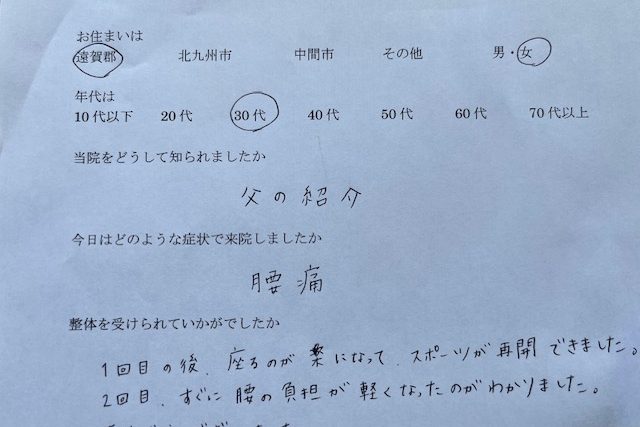 お住まいは
遠賀郡 北九州市 中間市 その他 男・女
年代は
10代以下 20代 30代 40代 50代 60代 70代以上
当院をどうして知られましたか
父の紹介
今日はどのような症状で来院しましたか
腰痛
整体を受けられていかがでしたか
1回目の後、座るのが楽になって、スポーツが再開できました。
2回目、すぐに腰の負担が軽くなったのがわかりました。